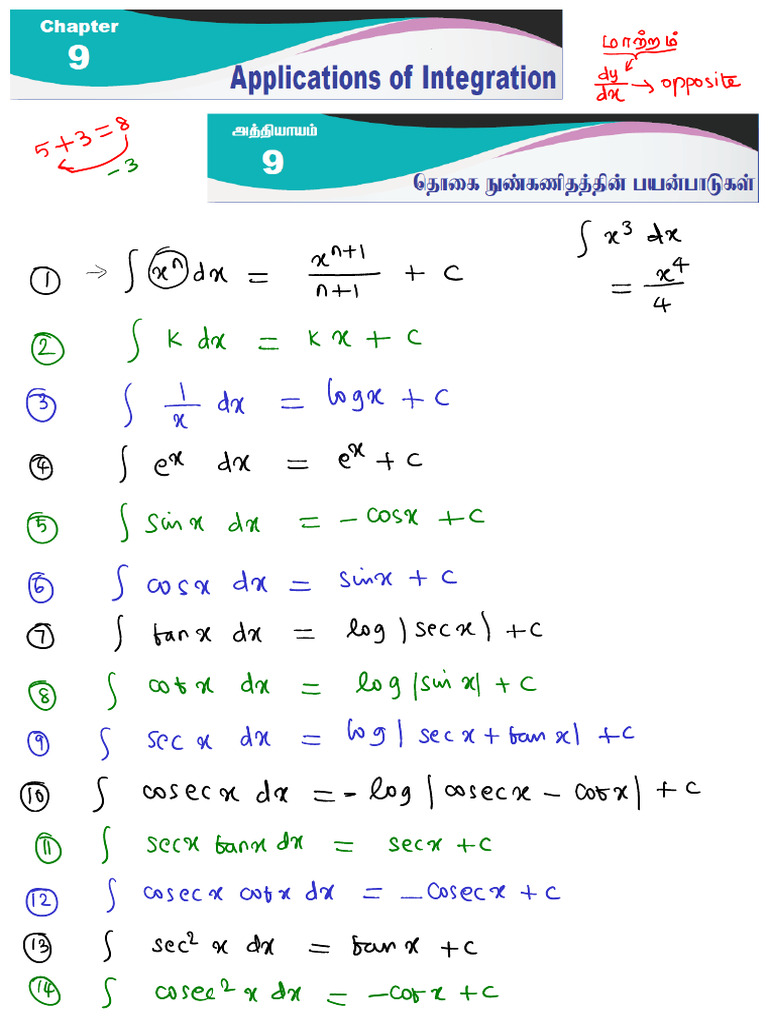 Chapter
9
Applications of Integration
மாற்றம்
dy/dx → opposite
5+3=8
-3
அத்தியாயம்
9
தொகை நுண்கணிதத்தின் பயன்பாடுகள்
① → ∫ xⁿ dx = xⁿ⁺¹/n+1 + C
∫ x³ dx
= x⁴/4
② ∫ K dx = Kx + C
③ ∫ 1/x dx = logx + C
④ ∫ eˣ dx = eˣ + C
⑤ ∫ sinx dx = -cosx + C
⑥ ∫ cosx dx = sinx + C
⑦ ∫ tanx dx = log|secx| + C
⑧ ∫ cotx dx = log|sinx| + C
⑨ ∫ secx dx = log|secx + tanx| + C
⑩ ∫ cosecx dx = -log|cosecx - cotx| + C
⑪ ∫ secx tanx dx = secx + C
⑫ ∫ cosecx cotx dx = -cosecx + C
⑬ ∫ sec²x dx = tanx + C
⑭ ∫ cosec²x dx = -cotx + C